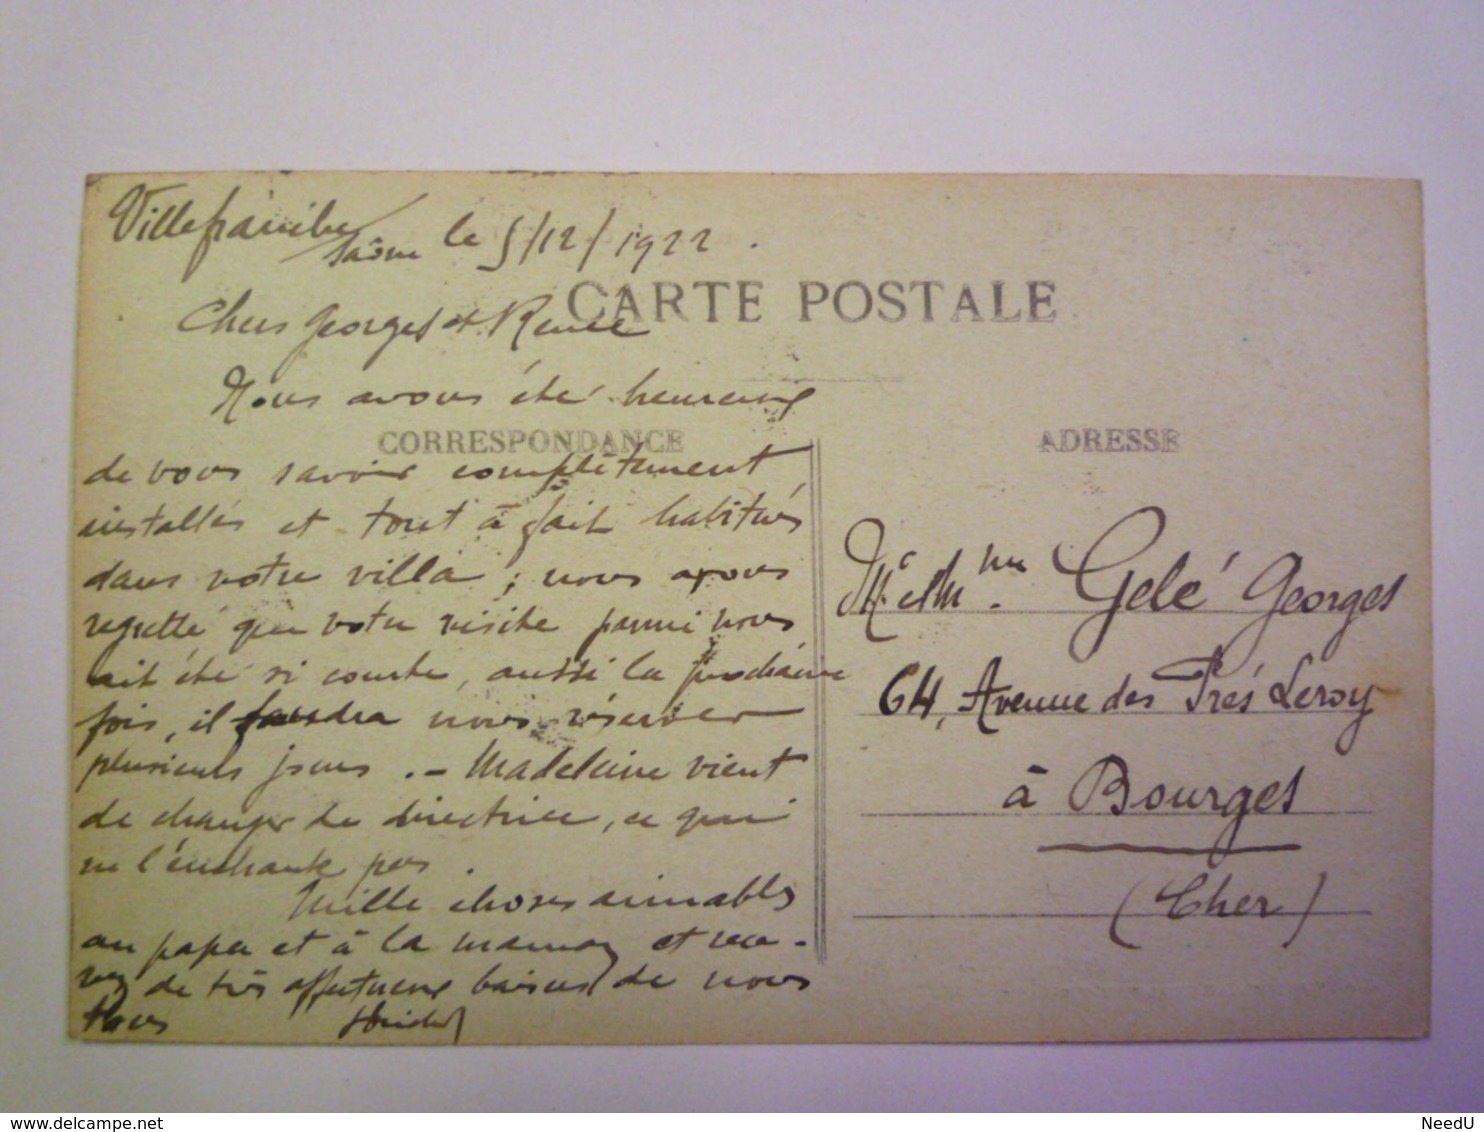 Villefranche
Saône le 5/12/1922.
CARTE POSTALE
Chers Georges et Renée
Nous avons été heureux
CORRESPONDANCE
de vous savoir complètement
installés et tout à fait habitués
dans votre villa ; nous avons
regretté que votre visite parmi nous
ait été si courte, aussi la prochaine
fois, il faudra nous réserver
plusieurs jours. — Madeleine vient
de changer de directrice, ce qui
ne l'enchante pas.
Mille choses aimables
au papa et à la maman et rece-
vez de très affectueux baisers de nous
tous
ADRESSE
Mr et Mme Gelé Georges
64, Avenue des Prés Leroy
à Bourges
(Cher)
NeedU